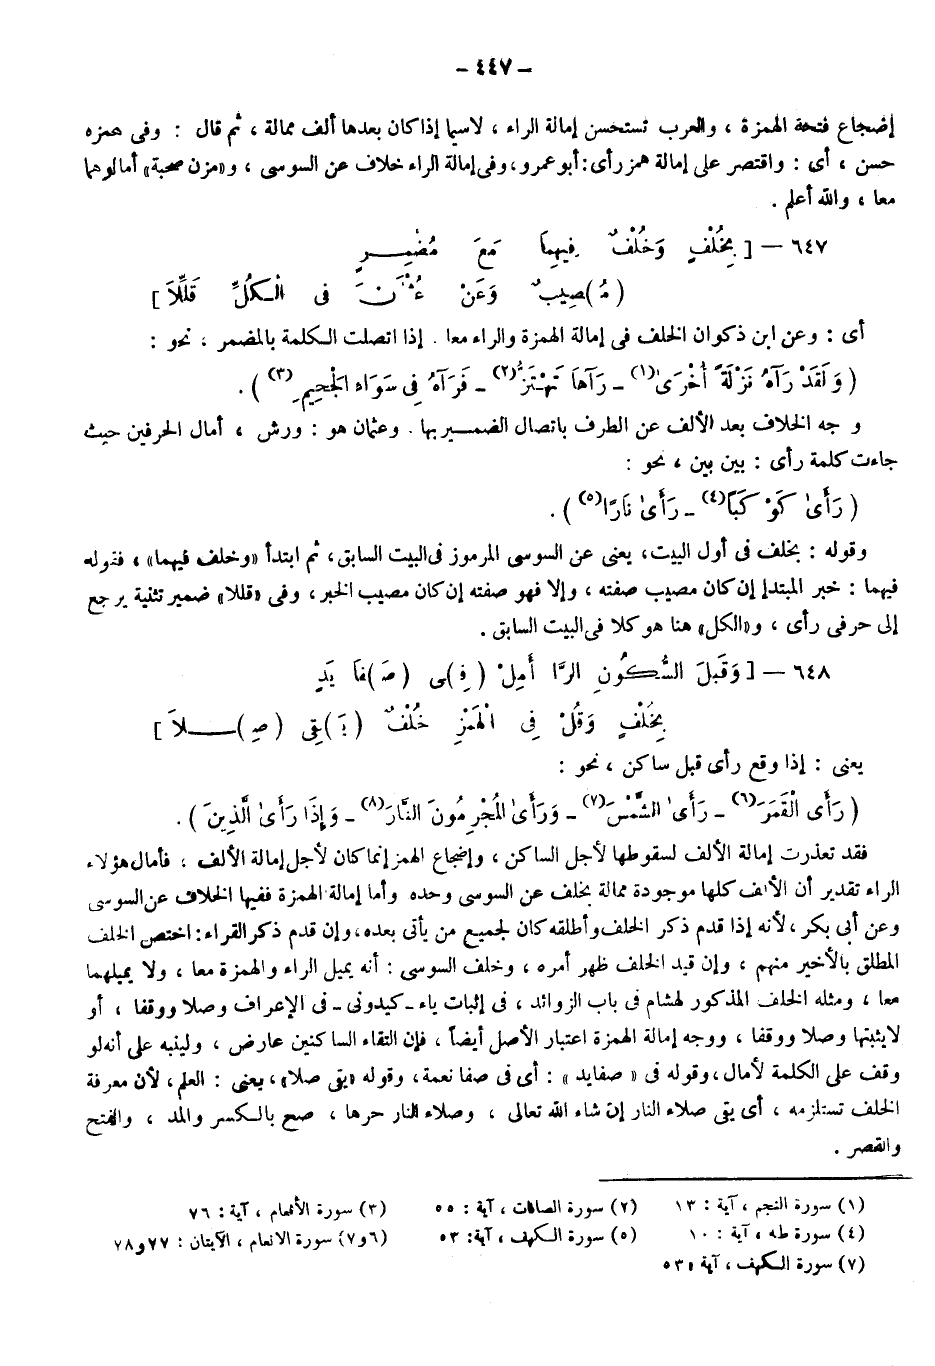 — ٤٤٧ —
إضجاع فتحة الهمزة ، والعرب تستحسن إمالة الراء ، لاسيما إذا كان بعدها ألف ممالة ، ثم قال : وفى همزه
حسن ، أى : واقتصر على إمالة همز رأى : أبو عمرو ، وفى إمالة الراء خلاف عن السوسى ، و«مزن صحبة» أمالوهما
معا ، والله أعلم .
٦٤٧ — [ بِخُلْفٍ وَخُلْفٌ فِيهِمَا مَعَ مُضْمِرٍ
(مُ)صِيبٌ وَعَنْ عُثْمَانَ فى الْكُلِّ قَلِّلَا ]
أى : وعن ابن ذكوان الخلف فى إمالة الهمزة والراء معا . إذا اتصلت الكلمة بالمضمر ، نحو :
( وَلَقَدْ رَآهُ نَزْلَةً أُخْرَىٰ(١) ـ رَآهَا تَهْتَزُّ(٢) ـ فَرَآهُ فِى سَوَاءِ الْجَحِيمِ(٣) ) .
و جه الخلاف بعد الألف عن الطرف باتصال الضمير بها . وعثمان هو : ورش ، أمال الحرفين حيث
جاءت كلمة رأى : بين بين ، نحو :
( رَأَىٰ كَوْكَبًا(٤) ـ رَأَىٰ نَارًا(٥) ) .
وقوله : بخلف فى أول البيت ، يعنى عن السوسى المرموز فى البيت السابق ، ثم ابتدأ «وخلف فيهما» ، فقوله
فيهما : خبر المبتدإ إن كان مصيب صفته ، وإلا فهو صفته إن كان مصيب الخبر ، وفى «قللا» ضمير تثنية يرجع
إلى حرفى رأى ، و«الكل» هنا هو كلا فى البيت السابق .
٦٤٨ — [ وَقَبْلَ السُّكُونِ الرَّا أَمِلْ (فِ)ى (صَ)فَا يَدٍ
بِخُلْفٍ وَقُلْ فِى الْهَمْزِ خُلْفٌ (يَ)قِى (صِ)ـلَا ]
يعنى : إذا وقع رأى قبل ساكن ، نحو :
( رَأَى الْقَمَرَ(٦) ـ رَأَى الشَّمْسَ(٧) ـ وَرَأَى الْمُجْرِمُونَ النَّارَ(٨) ـ وَإِذَا رَأَى الَّذِينَ ) .
فقد تعذرت إمالة الألف لسقوطها لأجل الساكن ، وإضجاع الهمز إنما كان لأجل إمالة الألف ، فأمال هؤلاء
الراء تقدير أن الألف كلها موجودة ممالة بخلف عن السوسى وحده وأما إمالة الهمزة ففيها الخلاف عن السوسى
وعن أبى بكر ، لأنه إذا قدم ذكر الخلف وأطلقه كان لجميع من يأتى بعده ، وإن قدم ذكر القراء : اختص الخلف
المطلق بالأخير منهم ، وإن قيد الخلف ظهر أمره ، وخلف السوسى : أنه يميل الراء والهمزة معا ، ولا يميلهما
معا ، ومثله الخلف المذكور لهشام فى باب الزوائد ، فى إثبات ياء ـ كيدونى ـ فى الإعراف وصلا ووقفا ، أو
لايثبتها وصلا ووقفا ، ووجه إمالة الهمزة اعتبار الأصل أيضاً ، فإن التقاء الساكنين عارض ، ولينبه على أنه لو
وقف على الكلمة لأمال ، وقوله فى « صفايد » : أى فى صفا نعمة ، وقوله «يقى صلا» ، يعنى : العلم ، لأن معرفة
الخلف تستلزمه ، أى يقى صلاء النار إن شاء الله تعالى ، وصلاء النار حرها ، صح بالكسر والمد ، والفتح
والقصر .
(١) سورة النجم ، آية : ١٣ (٢) سورة الصافات ، آية : ٥٥ (٣) سورة الأنعام ، آية : ٧٦
(٤) سورة طه ، آية : ١٠ (٥) سورة الكهف ، آية : ٥٣ (٦و٧) سورة الانعام ، الآيتان : ٧٧و٧٨
(٧) سورة الكهف ، آية ٥٣١